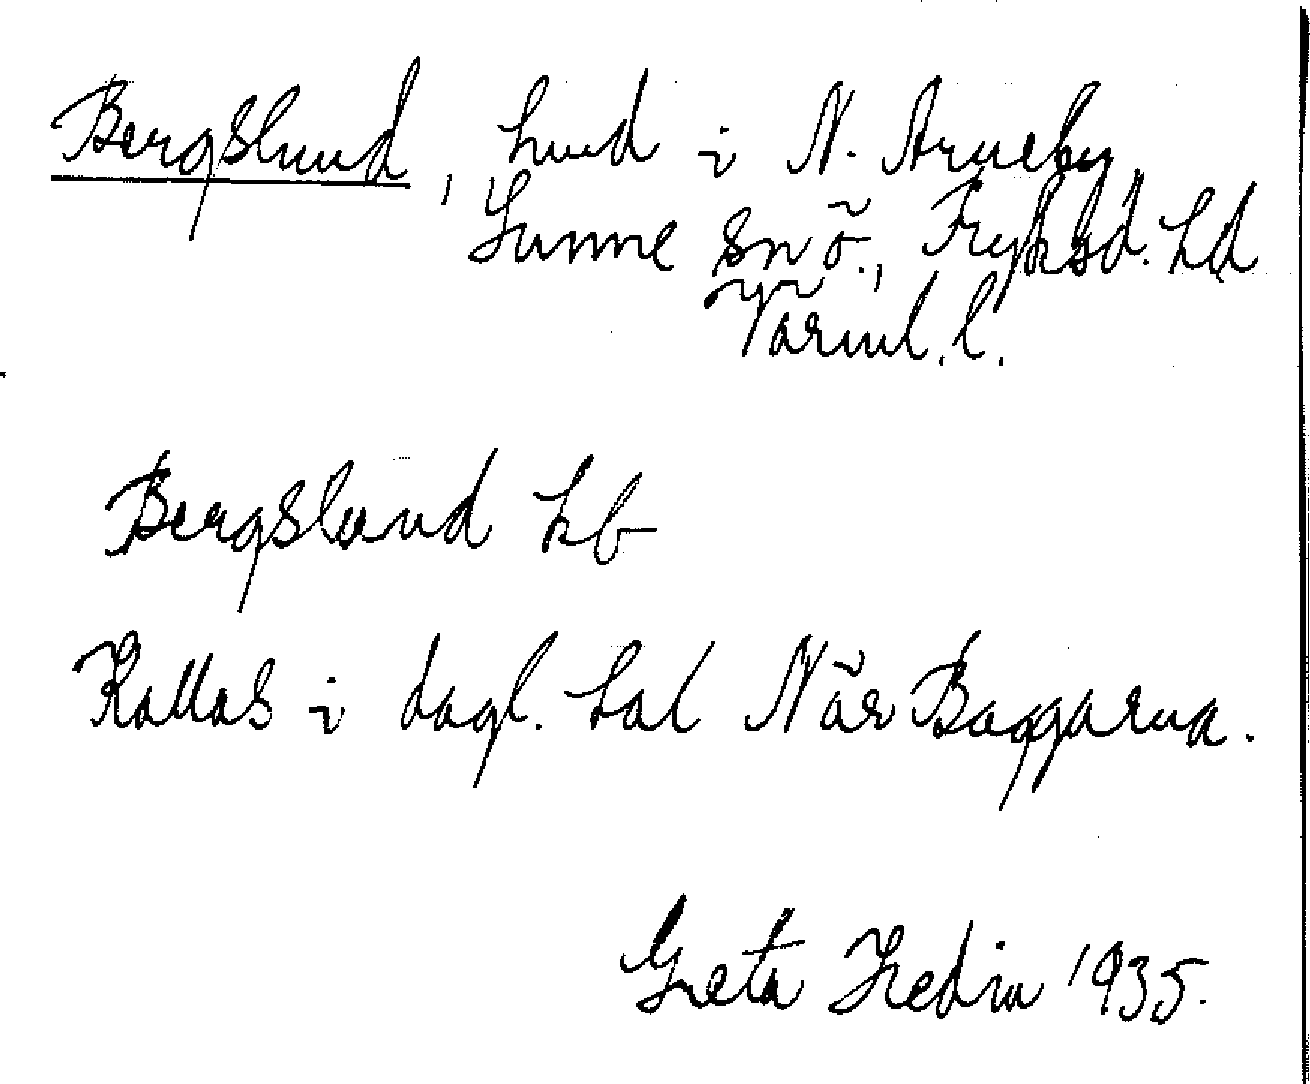 Bergslund, hmd i N. Arneby,
Sunne sn ö., Fryksd. hd
Värml. l.
Bergslund hb
Kallas i dagl. tal När Baggarna.
Greta Hedin 1935.